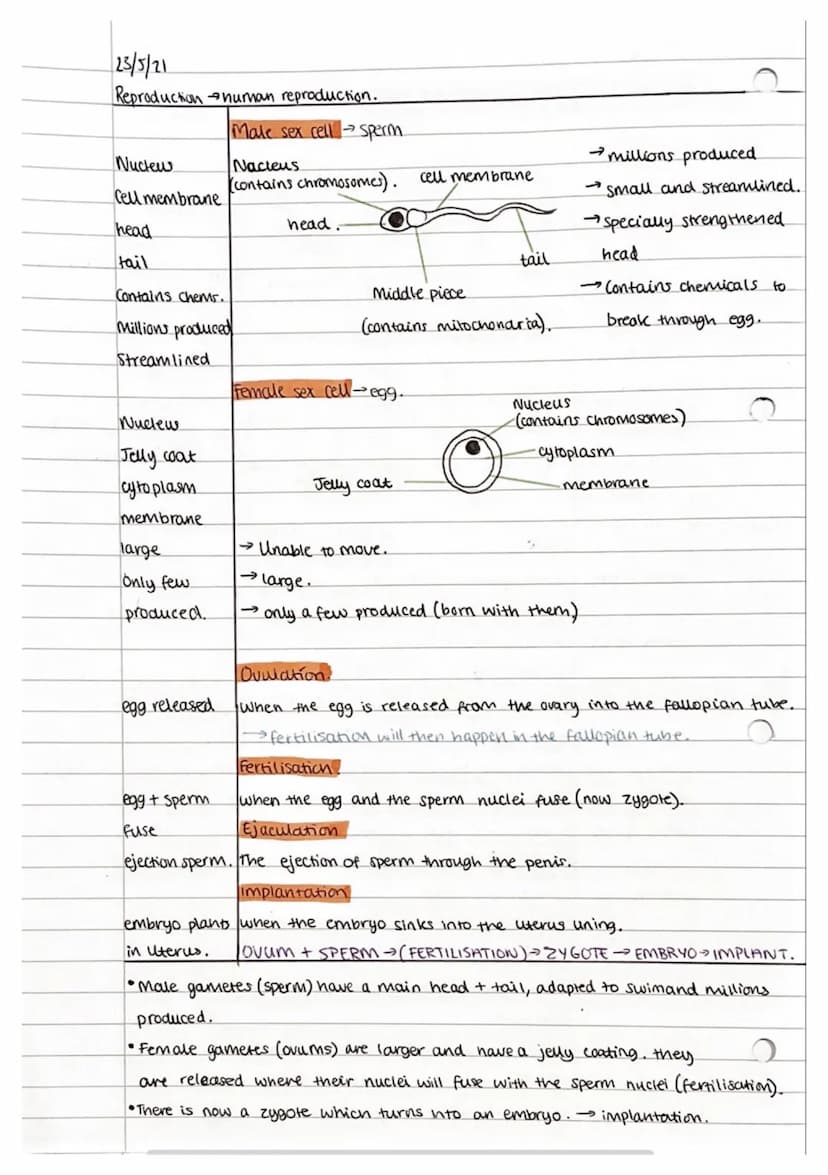 23/5/21
Reproduction → human reproduction.
Male sex cell → sperm
Nucleus
Cell membrane
head
tail
Contains chems.
Millions produced
Streamlined
Nucleus
(contains chromosomes).
cell membrane
head.
tail
Middle piece
(contains mitochondria).
→ millions produced
→ small and streamlined.
→ specially strengthened
head
→ Contains chemicals to
break through egg.
Female sex cell → egg.
Nucleus
Jelly coat
cytoplasm
membrane
large
Only few
produced.
Nucleus
(contains chromosomes)
cytoplasm
membrane
Jelly coat
→ Unable to move.
→ large.
→ only a few produced (born with them)
Ovulation.
egg released
When the egg is released from the ovary into the fallopian tube.
→ fertilisation will then happen in the fallopian tube.
Fertilisation.
egg + sperm
fuse
When the egg and the sperm nuclei fuse (now zygote).
Ejaculation
ejection sperm.
The ejection of sperm through the penis.
Implantation
embryo plants
in uterus.
When the embryo sinks into the uterus lining.
OVUM + SPERM → (FERTILISATION) → ZYGOTE → EMBRYO → IMPLANT.
• Male gametes (sperm) have a main head + tail, adapted to swim and millions
produced.
• Female gametes (ovums) are larger and have a jelly coating. they
are released where their nuclei will fuse with the sperm nuclei (fertilisation).
• There is now a zygote which turns into an embryo. → implantation.